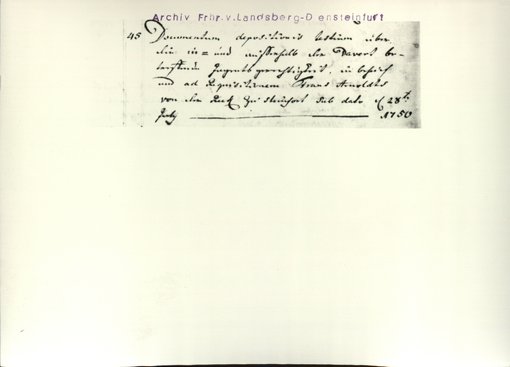 Archiv Frhr.v.Landsberg-D ensteinfurt
45 Documentum depositionis testium über
die in= und außerhalb der Davert be-
Jagdts gerechtigkeit, in behuef
und ad Requisitionem Frans Arnoldts
von der Reck zu Steinfort sub dato 28t
July 1750